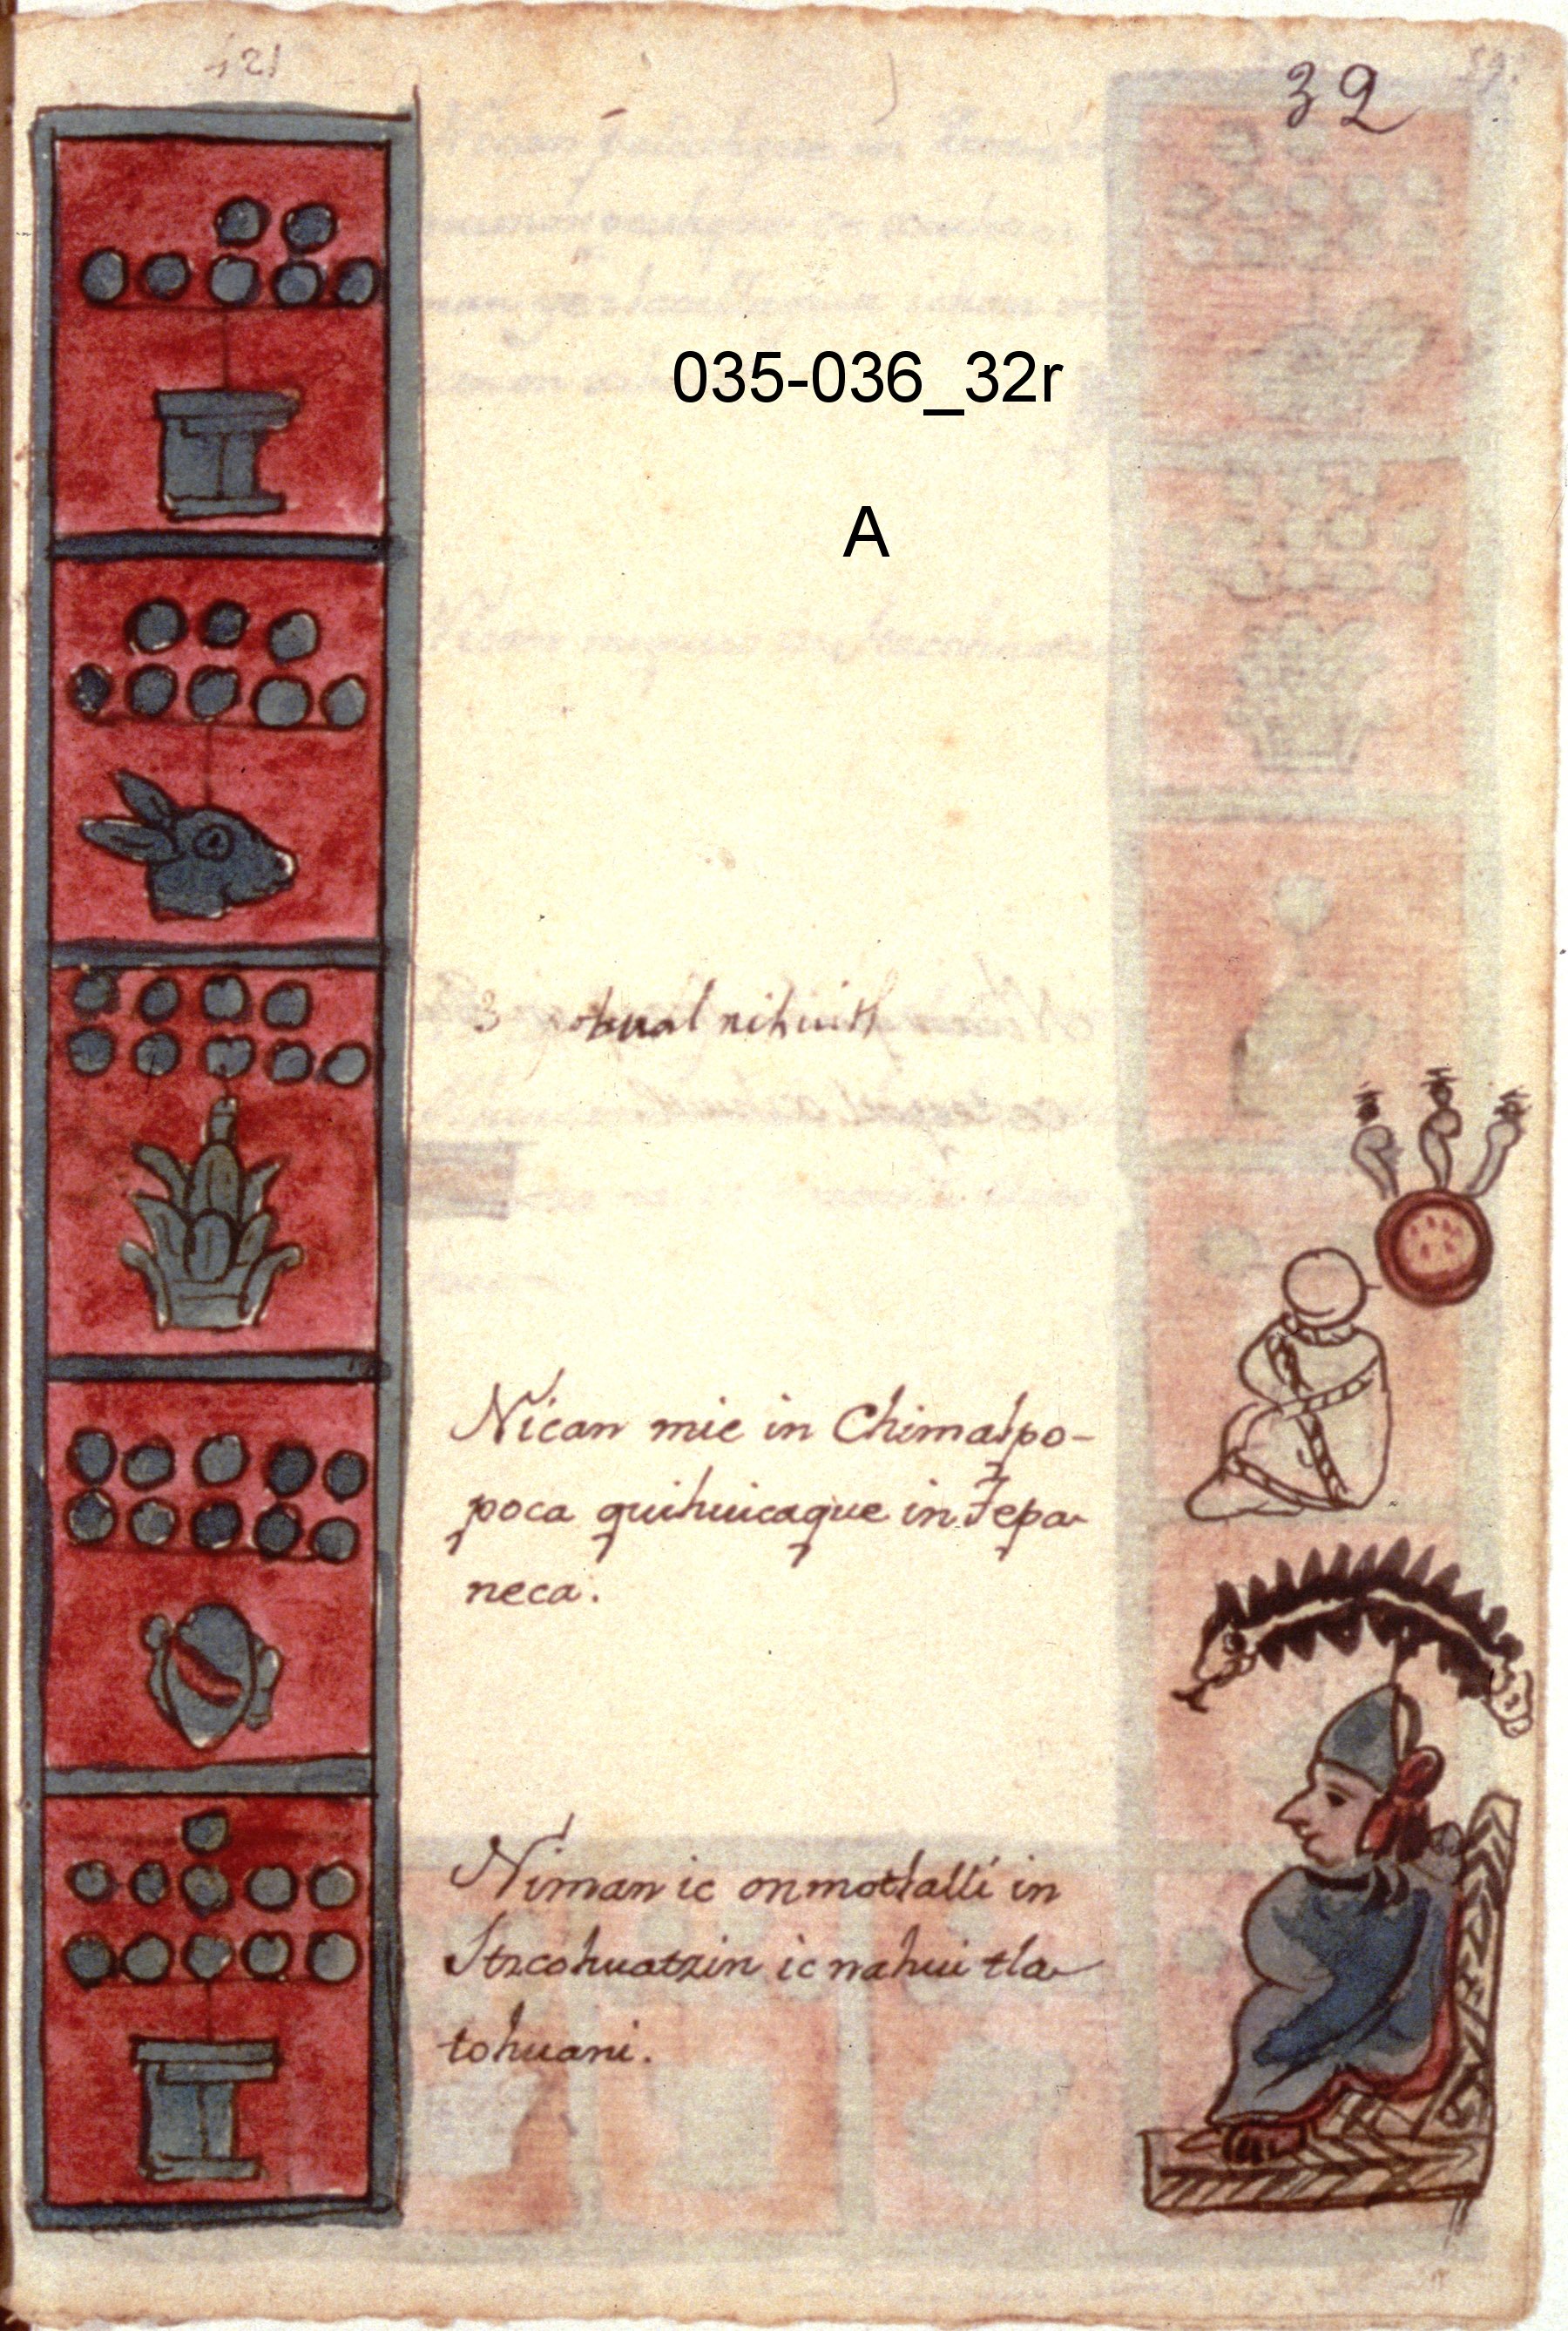 121
32
035-036_32r
A
3
Nican mic in Chimalpo-
poca quihuicaque in Tepa-
neca.
Niman ic onmotlalli in
Itzcohuatzin ic nahui tla-
tohuani.